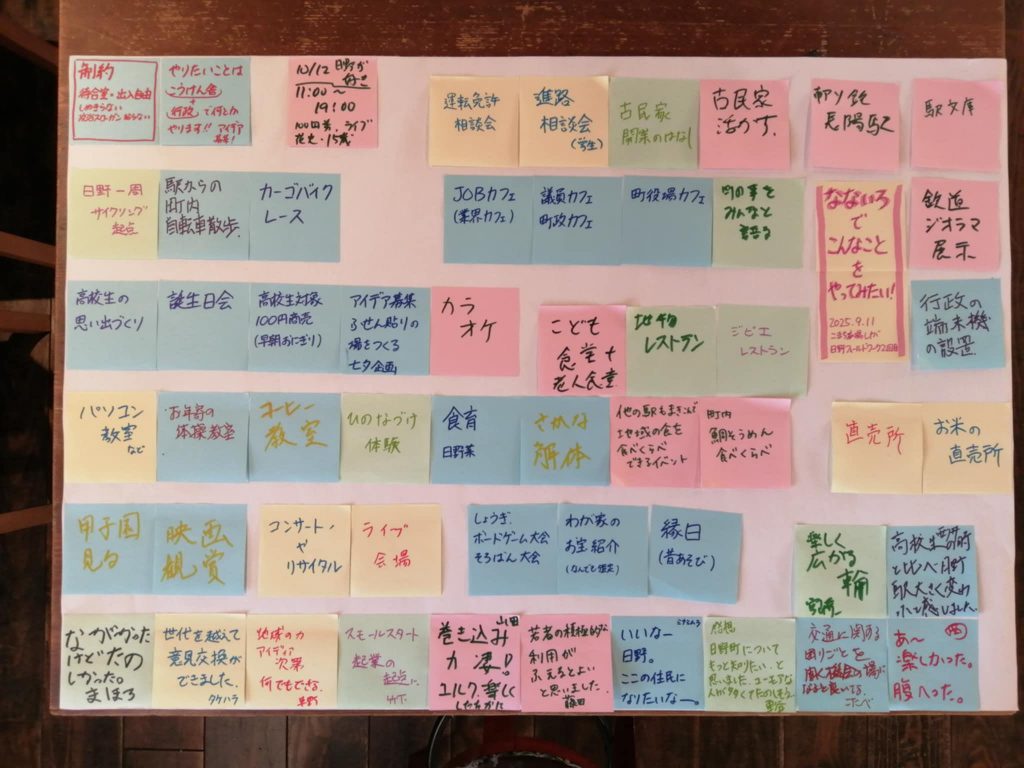 制約
待合室・出入自由
しめきらない
やりたいことは
こうけん舎
+
行政で何とか
やります!! アイデア
募集!
10/12 日野が
11:00〜
19:00
運転免許
相談会
進路
相談会
(学生)
古民家
開業のはなし
古民家
活かす.
南阿蘇
長陽駅
駅文庫
日野一周
サイクリング
起点
駅からの
町内
自転車散歩.
カーゴバイク
レース
JOBカフェ
(業界カフェ)
議員カフェ
町政カフェ
町役場カフェ
町の事を
みんなと
語る
なないろ
で
こんなこと
を
やってみたい!
2025.9.11
日野フィールドワーク2回目
鉄道
ジオラマ
展示
高校生の
思い出づくり
誕生日会
高校生対象
100円商売
(早朝おにぎり)
アイデア募集
ふせん貼りの
場をつくる
七夕企画
カラ
オケ
こども
食堂+
老人食堂
地物
レストラン
ジビエ
レストラン
行政の
端末機
の設置
パソコン
教室
など
お年寄の
体操教室
コーヒー
教室
ひのなづけ
体験
食育
日野菜
さかな
解体
他の駅もまきこんで
地域の食を
食べくらべ
できるイベント
町内
鯛そうめん
食べくらべ
直売所
お米の
直売所
甲子園
見る
映画
観賞
コンサート・
や
リサイタル
ライブ
会場
しょうぎ.
ボードゲーム大会
そろばん大会
わが家の
お宝紹介
(なんでも鑑定)
縁日
(昔あそび)
楽しく
広がる
輪
高校生の時
と比べ日野
駅大きく変わ
ったと感じました.
ながかった
けどたの
しかった。
まほろ
世代を越えて
意見交換が
できました.
タケハラ
地域の力
アイデア
次第
何でもできる.
スモールスタート
起業の
起点に
竹下
巻き込み
力凄!
山田
若者の積極的な
利用が
ふえるとよい
と思いました.
藤田
いいなー
日野。
ここの住民に
なりたいなー。
感想
日野町について
もっと知りたい.と
思いました.ユニークな
人が多くてたのしそう.
交通に関する
困りごとを
聞く機会の場が
なると良いなる.
あ〜
楽しかった。
腹へった。